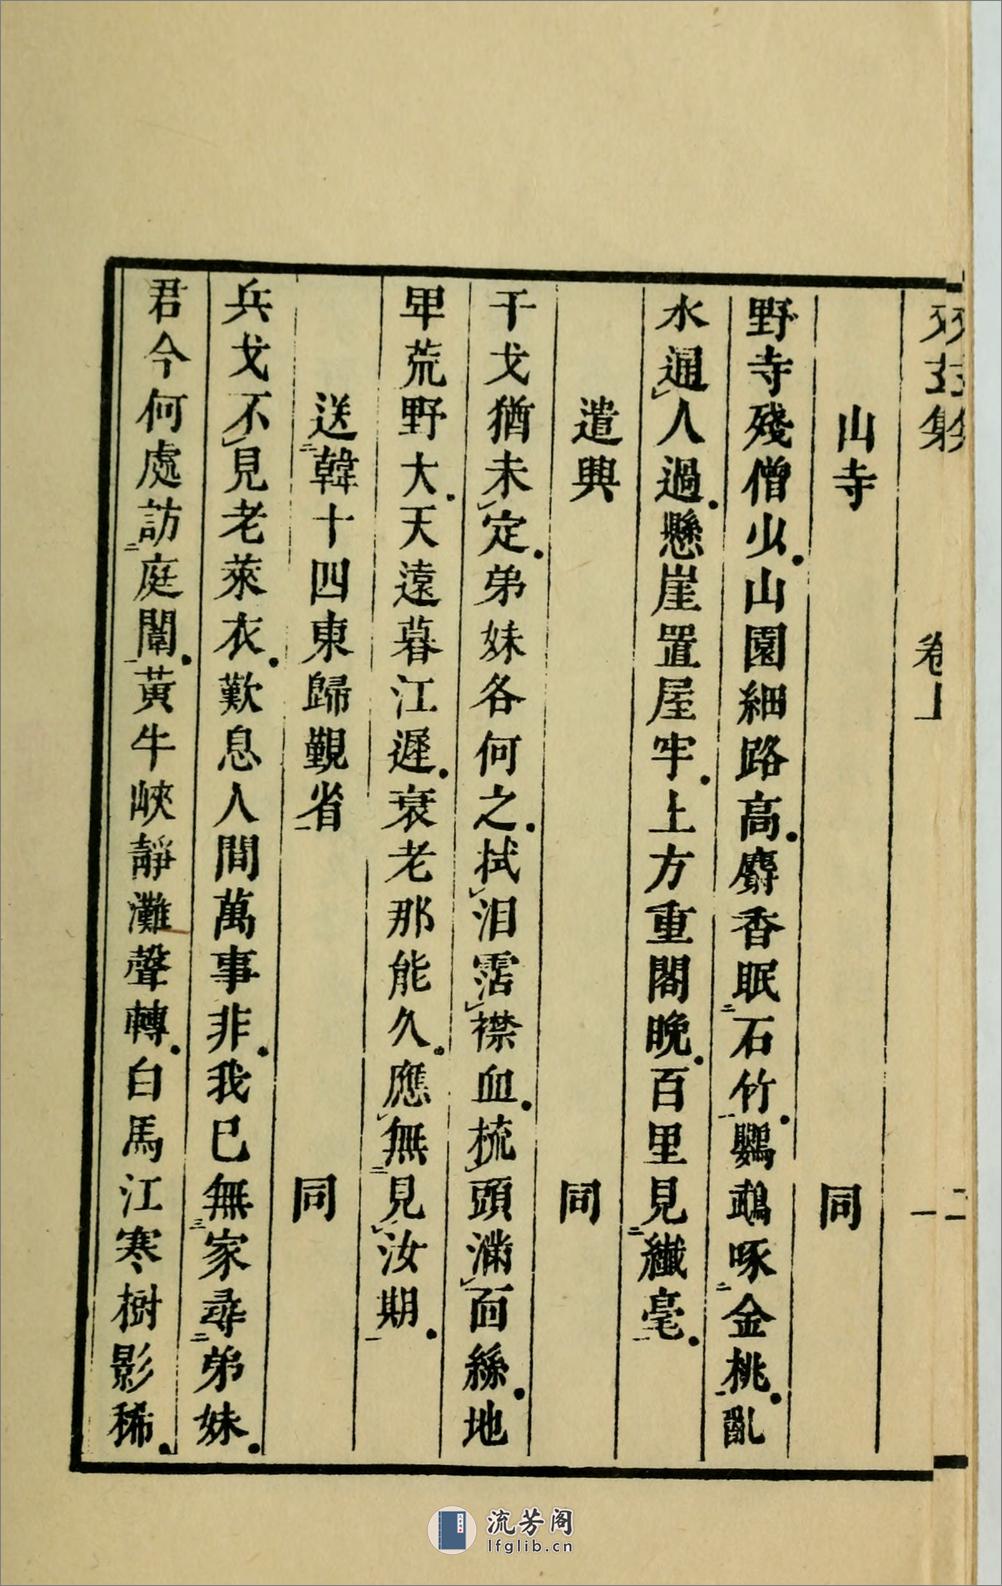 卷上
二
山寺　同
野寺殘僧少山園細路高麝香眠石竹鸚鵡啄金桃亂
水通人過懸崖置屋牢上方重閣晚百里見纖毫
遣興　同
干戈猶未定弟妹各何之拭泪霑襟血梳頭滿面絲地
卑荒野大天遠暮江遲衰老那能久應無見汝期
送韓十四東歸覲省　同
兵戈不見老萊衣歎息人間萬事非我已無家尋弟妹
君今何處訪庭闈黃牛峽靜灘聲轉白馬江寒樹影稀
流芳阁
lfglib.cn